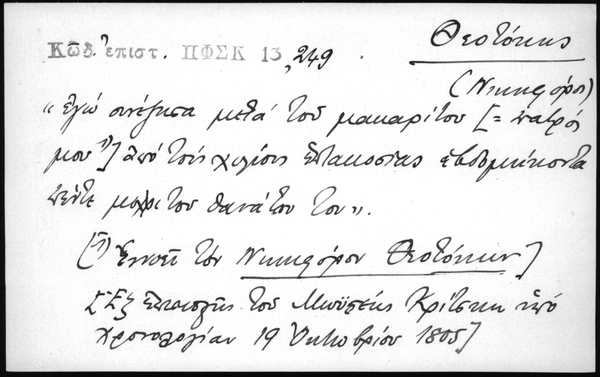 Κῶδ. ἐπιστ. ΠΦΣΚ 13, 249
Θεοτόκης
(Νικηφόρος)
"ἐγὼ συνέζησα μετὰ τοῦ μακαρίτου [= πατρός
μου¹)] ἀπὸ τοὺς χιλίους ἑπτακοσίας ἑβδομήκοντα
πέντε μέχρι τοῦ θανάτου του".
[¹) Ἐννοεῖ τὸν Νικηφόρον Θεοτόκην]
[Ἐξ ἐπιστολῆς τοῦ Μωϋσέως Κρίτσκη ὑπὸ
χρονολογίαν 19 Ὀκτωβρίου 1805]